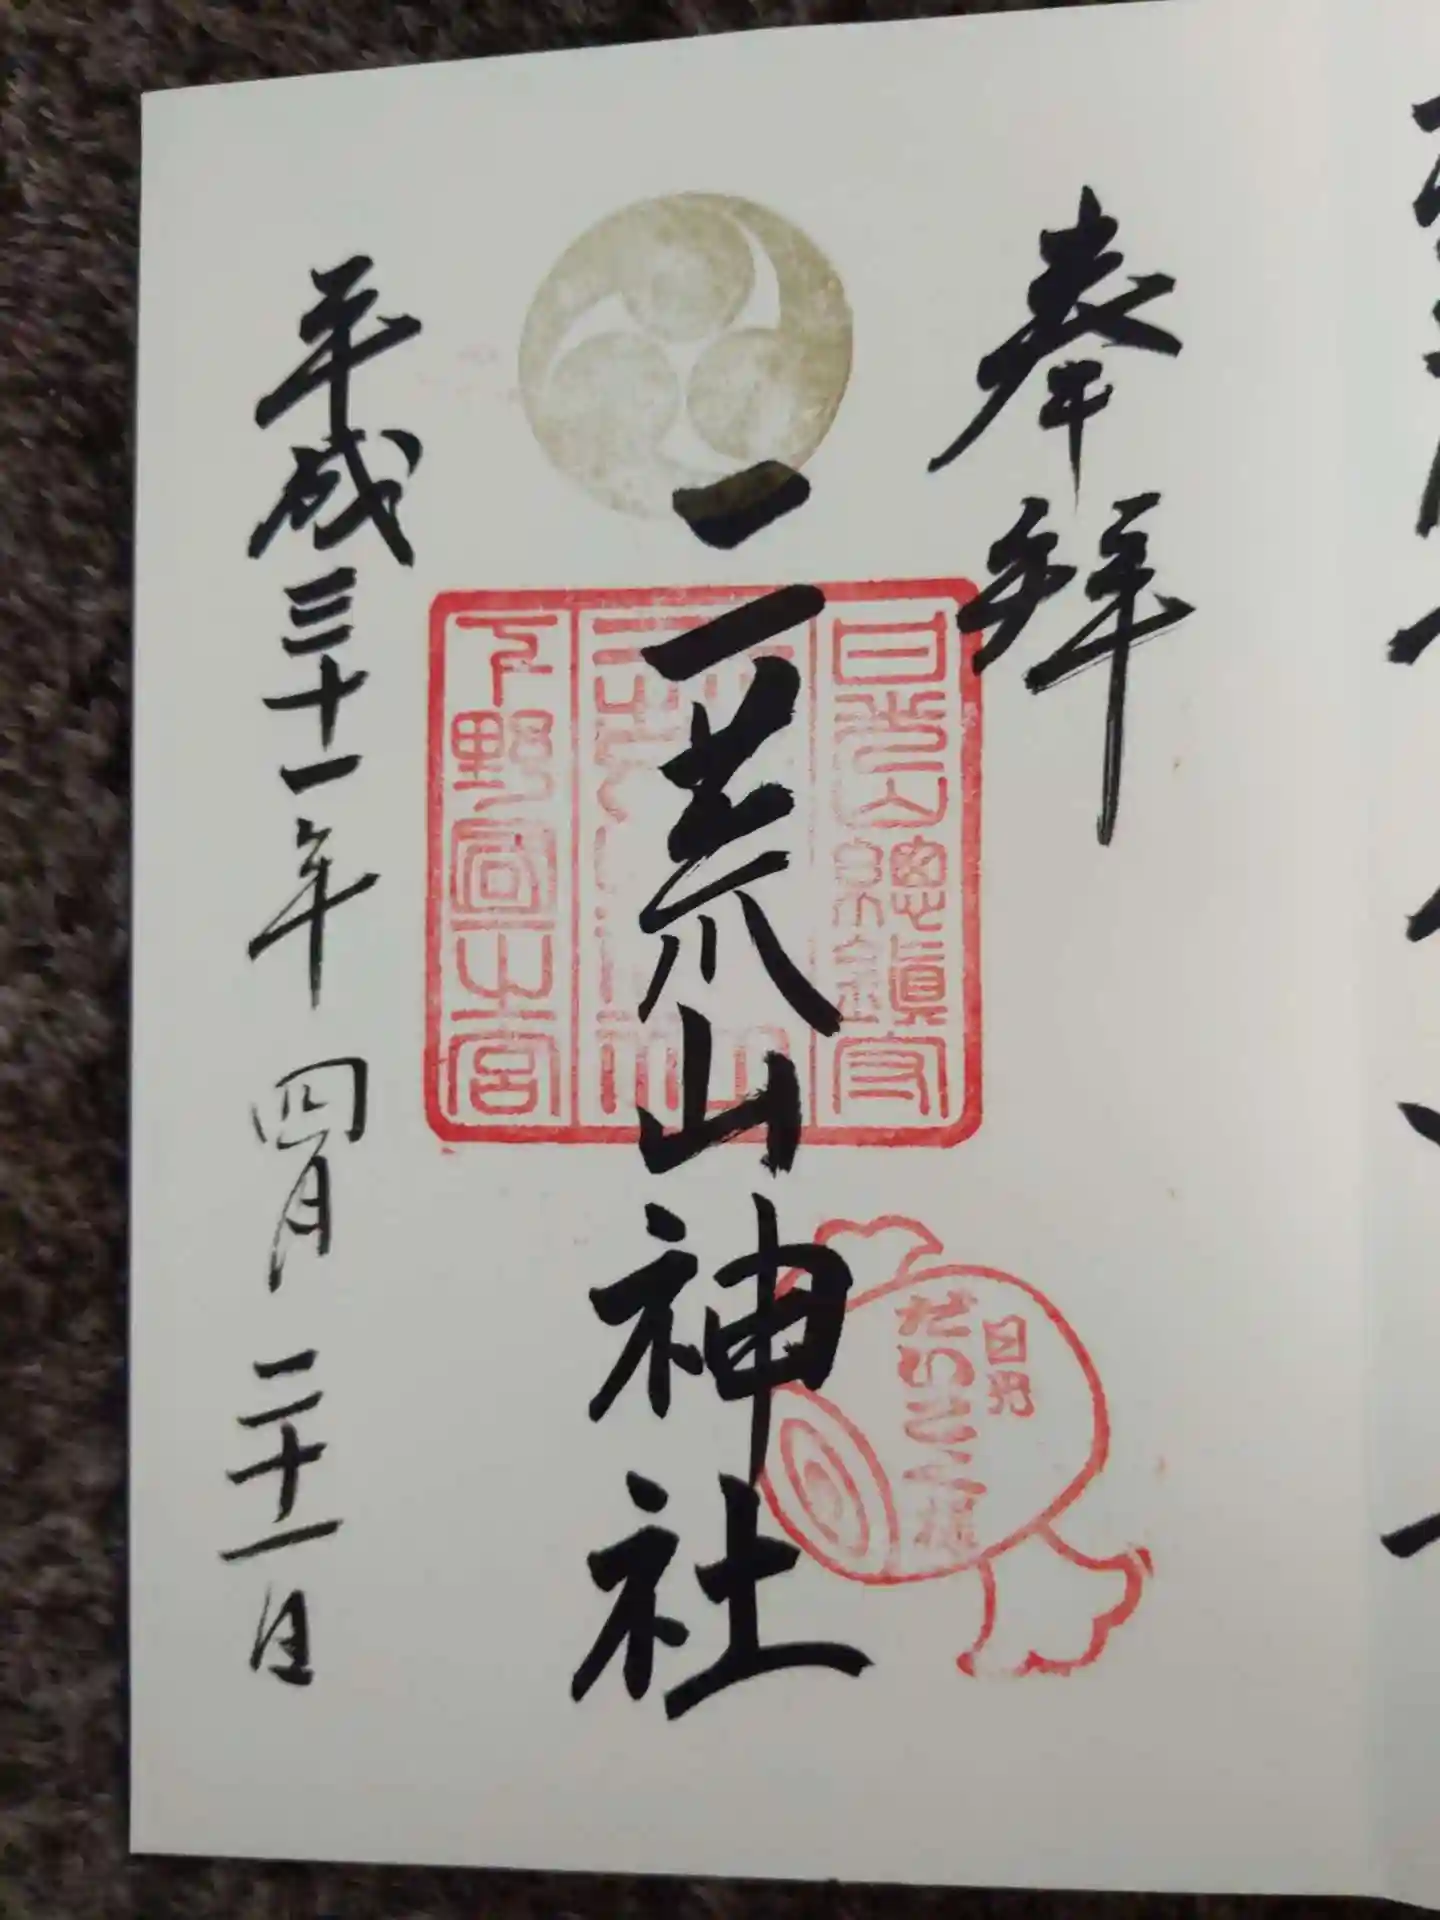 奉拝
日光山總鎮守
二荒山神社
下野國一之宮
日光
だいこく様
平成三十一年 四月 二十一日